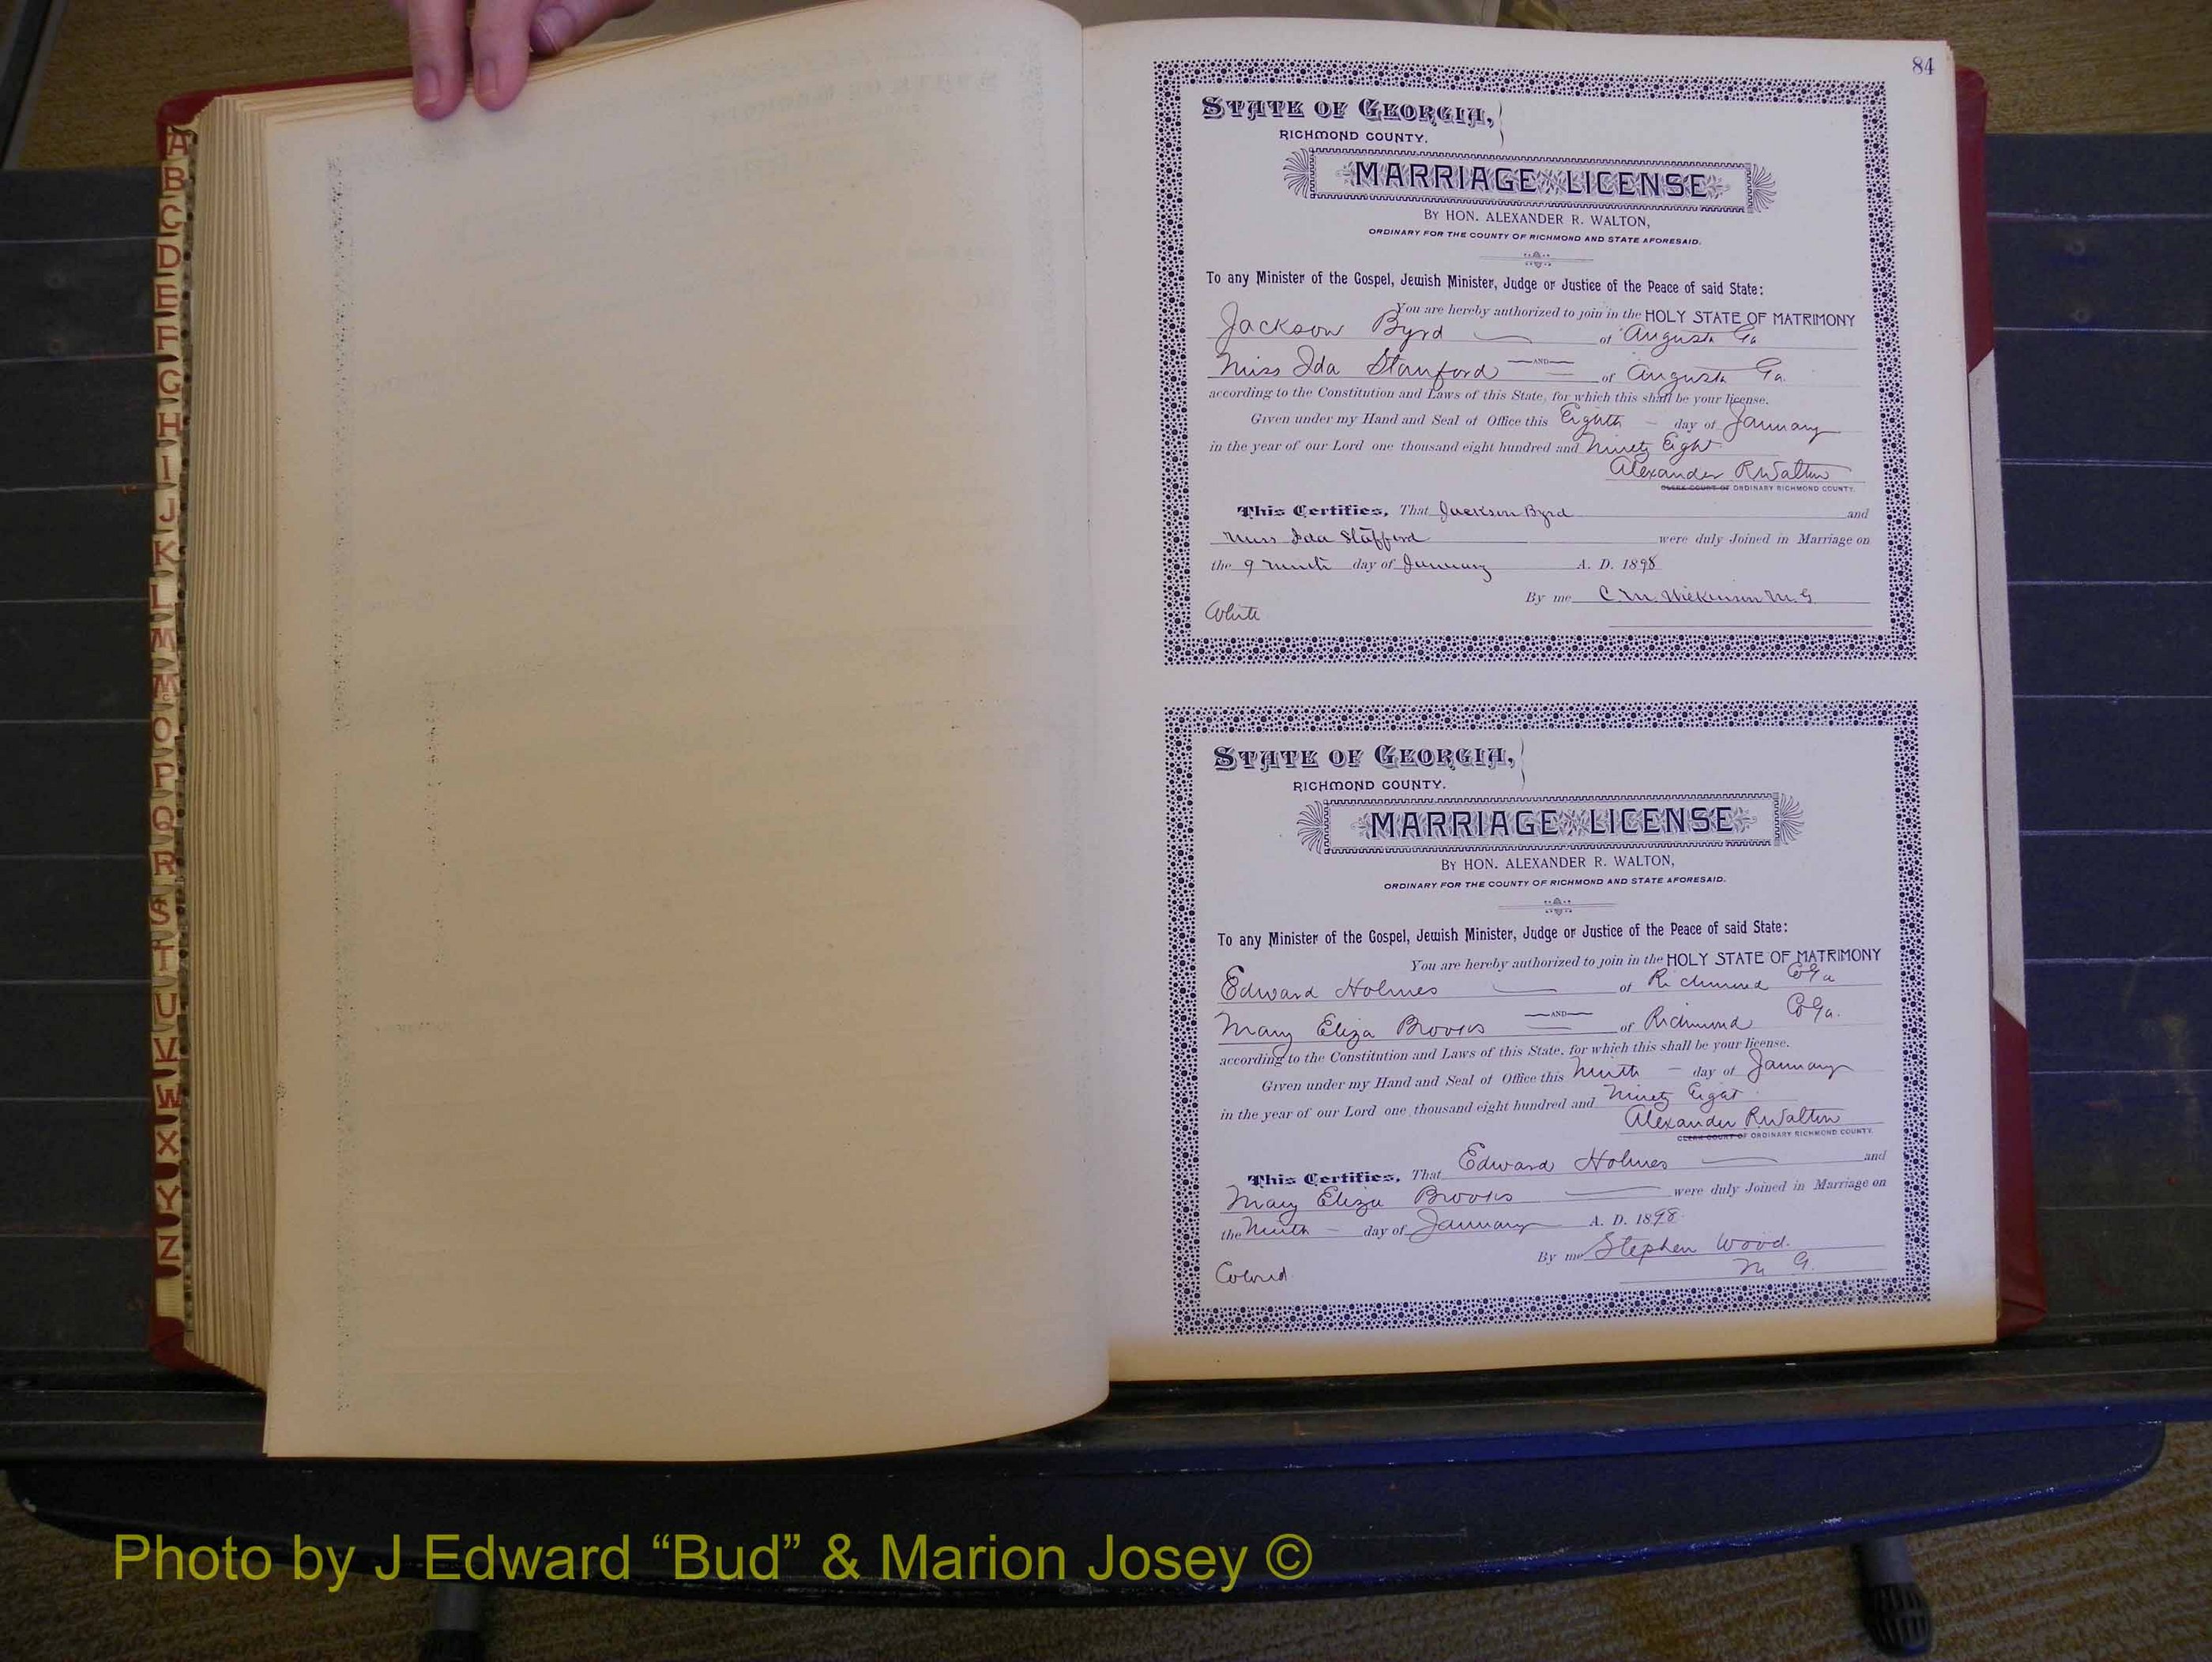 84
A
B
C
D
E
F
G
H
I
J
K
L
M
Mc
O
P
Q
R
S
T
U
V
W
X
Y
Z
STATE OF GEORGIA,
RICHMOND COUNTY.
MARRIAGE LICENSE
BY HON. ALEXANDER R. WALTON,
ORDINARY FOR THE COUNTY OF RICHMOND AND STATE AFORESAID.
To any Minister of the Gospel, Jewish Minister, Judge or Justice of the Peace of said State:
You are hereby authorized to join in the HOLY STATE OF MATRIMONY
Jackson Byrd of Augusta Ga
AND
Miss Ida Stanford of Augusta Ga.
according to the Constitution and Laws of this State, for which this shall be your license.
Given under my Hand and Seal of Office this Eighth day of January
in the year of our Lord one thousand eight hundred and Ninety Eight
Alexander R Walton
CLERK COURT OF ORDINARY RICHMOND COUNTY.
This Certifies, That Jackson Byrd and
Miss Ida Stafford were duly Joined in Marriage on
the 9 ninth day of January A. D. 1898
By me C. M. M. G.
White
STATE OF GEORGIA,
RICHMOND COUNTY.
MARRIAGE LICENSE
BY HON. ALEXANDER R. WALTON,
ORDINARY FOR THE COUNTY OF RICHMOND AND STATE AFORESAID.
To any Minister of the Gospel, Jewish Minister, Judge or Justice of the Peace of said State:
You are hereby authorized to join in the HOLY STATE OF MATRIMONY
Edward Holmes of Richmond Co Ga
AND
Mary Eliza Brooks of Richmond Co Ga.
according to the Constitution and Laws of this State, for which this shall be your license.
Given under my Hand and Seal of Office this Ninth day of January
in the year of our Lord one thousand eight hundred and Ninety Eight
Alexander R Walton
CLERK COURT OF ORDINARY RICHMOND COUNTY.
This Certifies, That Edward Holmes and
Mary Eliza Brooks were duly Joined in Marriage on
the Ninth day of January A. D. 1898
By me Stephen Wood.
M G.
Colored
Photo by J Edward “Bud” & Marion Josey ©